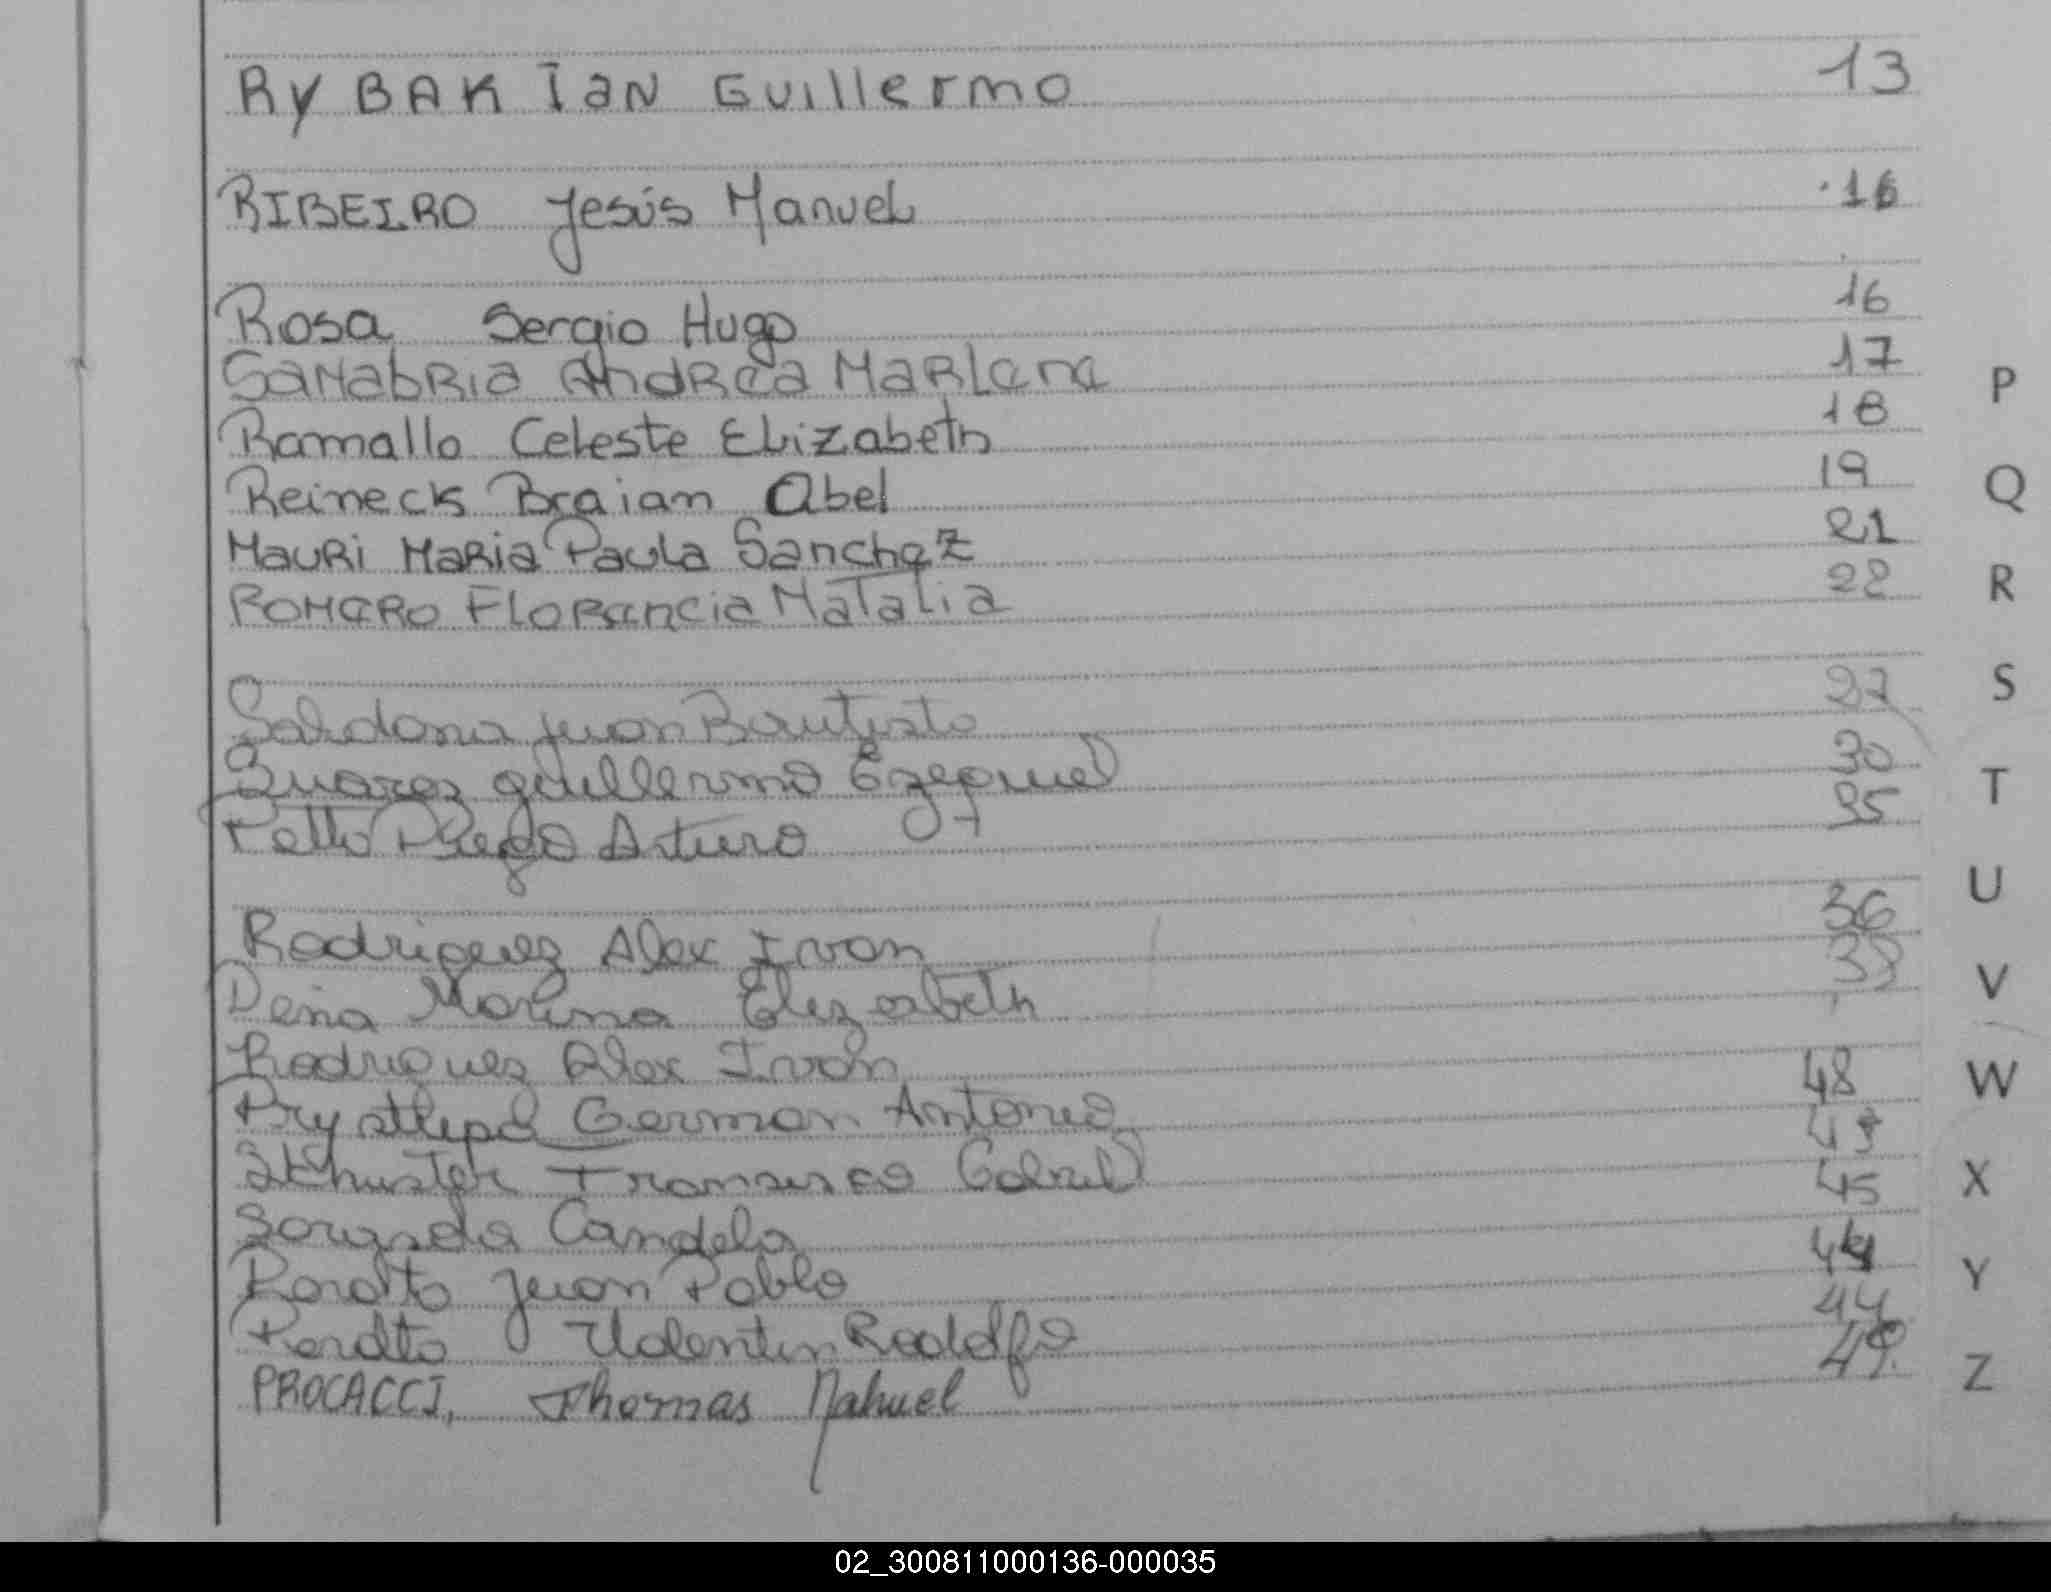 RYBAK IaN Guillermo 13
RIBEIRO Jesús Manuel 16
Rosa Sergio Hugo 16
SaNabRia AndRea MaRLena 17
Ramallo Celeste Elizabeth 18
Reineck Braian Abel 19
MauRi MaRia Paula Sanchez 21
ROMERO FloRencia NaTalia 22
Saldona Juan Bautista 27
Suarez guillermo Ezequiel 30
Petto Diego Arturo 35
Rodriguez Alex Ivan 36
Peña Marina Elizabeth 38
Rodriguez Alex Ivan
Prystupa German Antonio 48
Schuster Fransisco Gabriel
Candela 45
Peralta Juan Pablo 44
Peralta Valentin Rodolfo 44
PROCACCI, Thomas Nahuel 49
P
Q
R
S
T
U
V
W
X
Y
Z
02_300811000136-000035